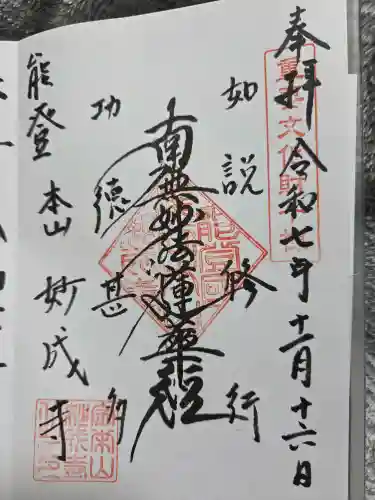 奉拝 令和七年十一月十六日
如説修行
南無妙法蓮華経
功徳甚多
能登 本山 妙成寺
重要文化財